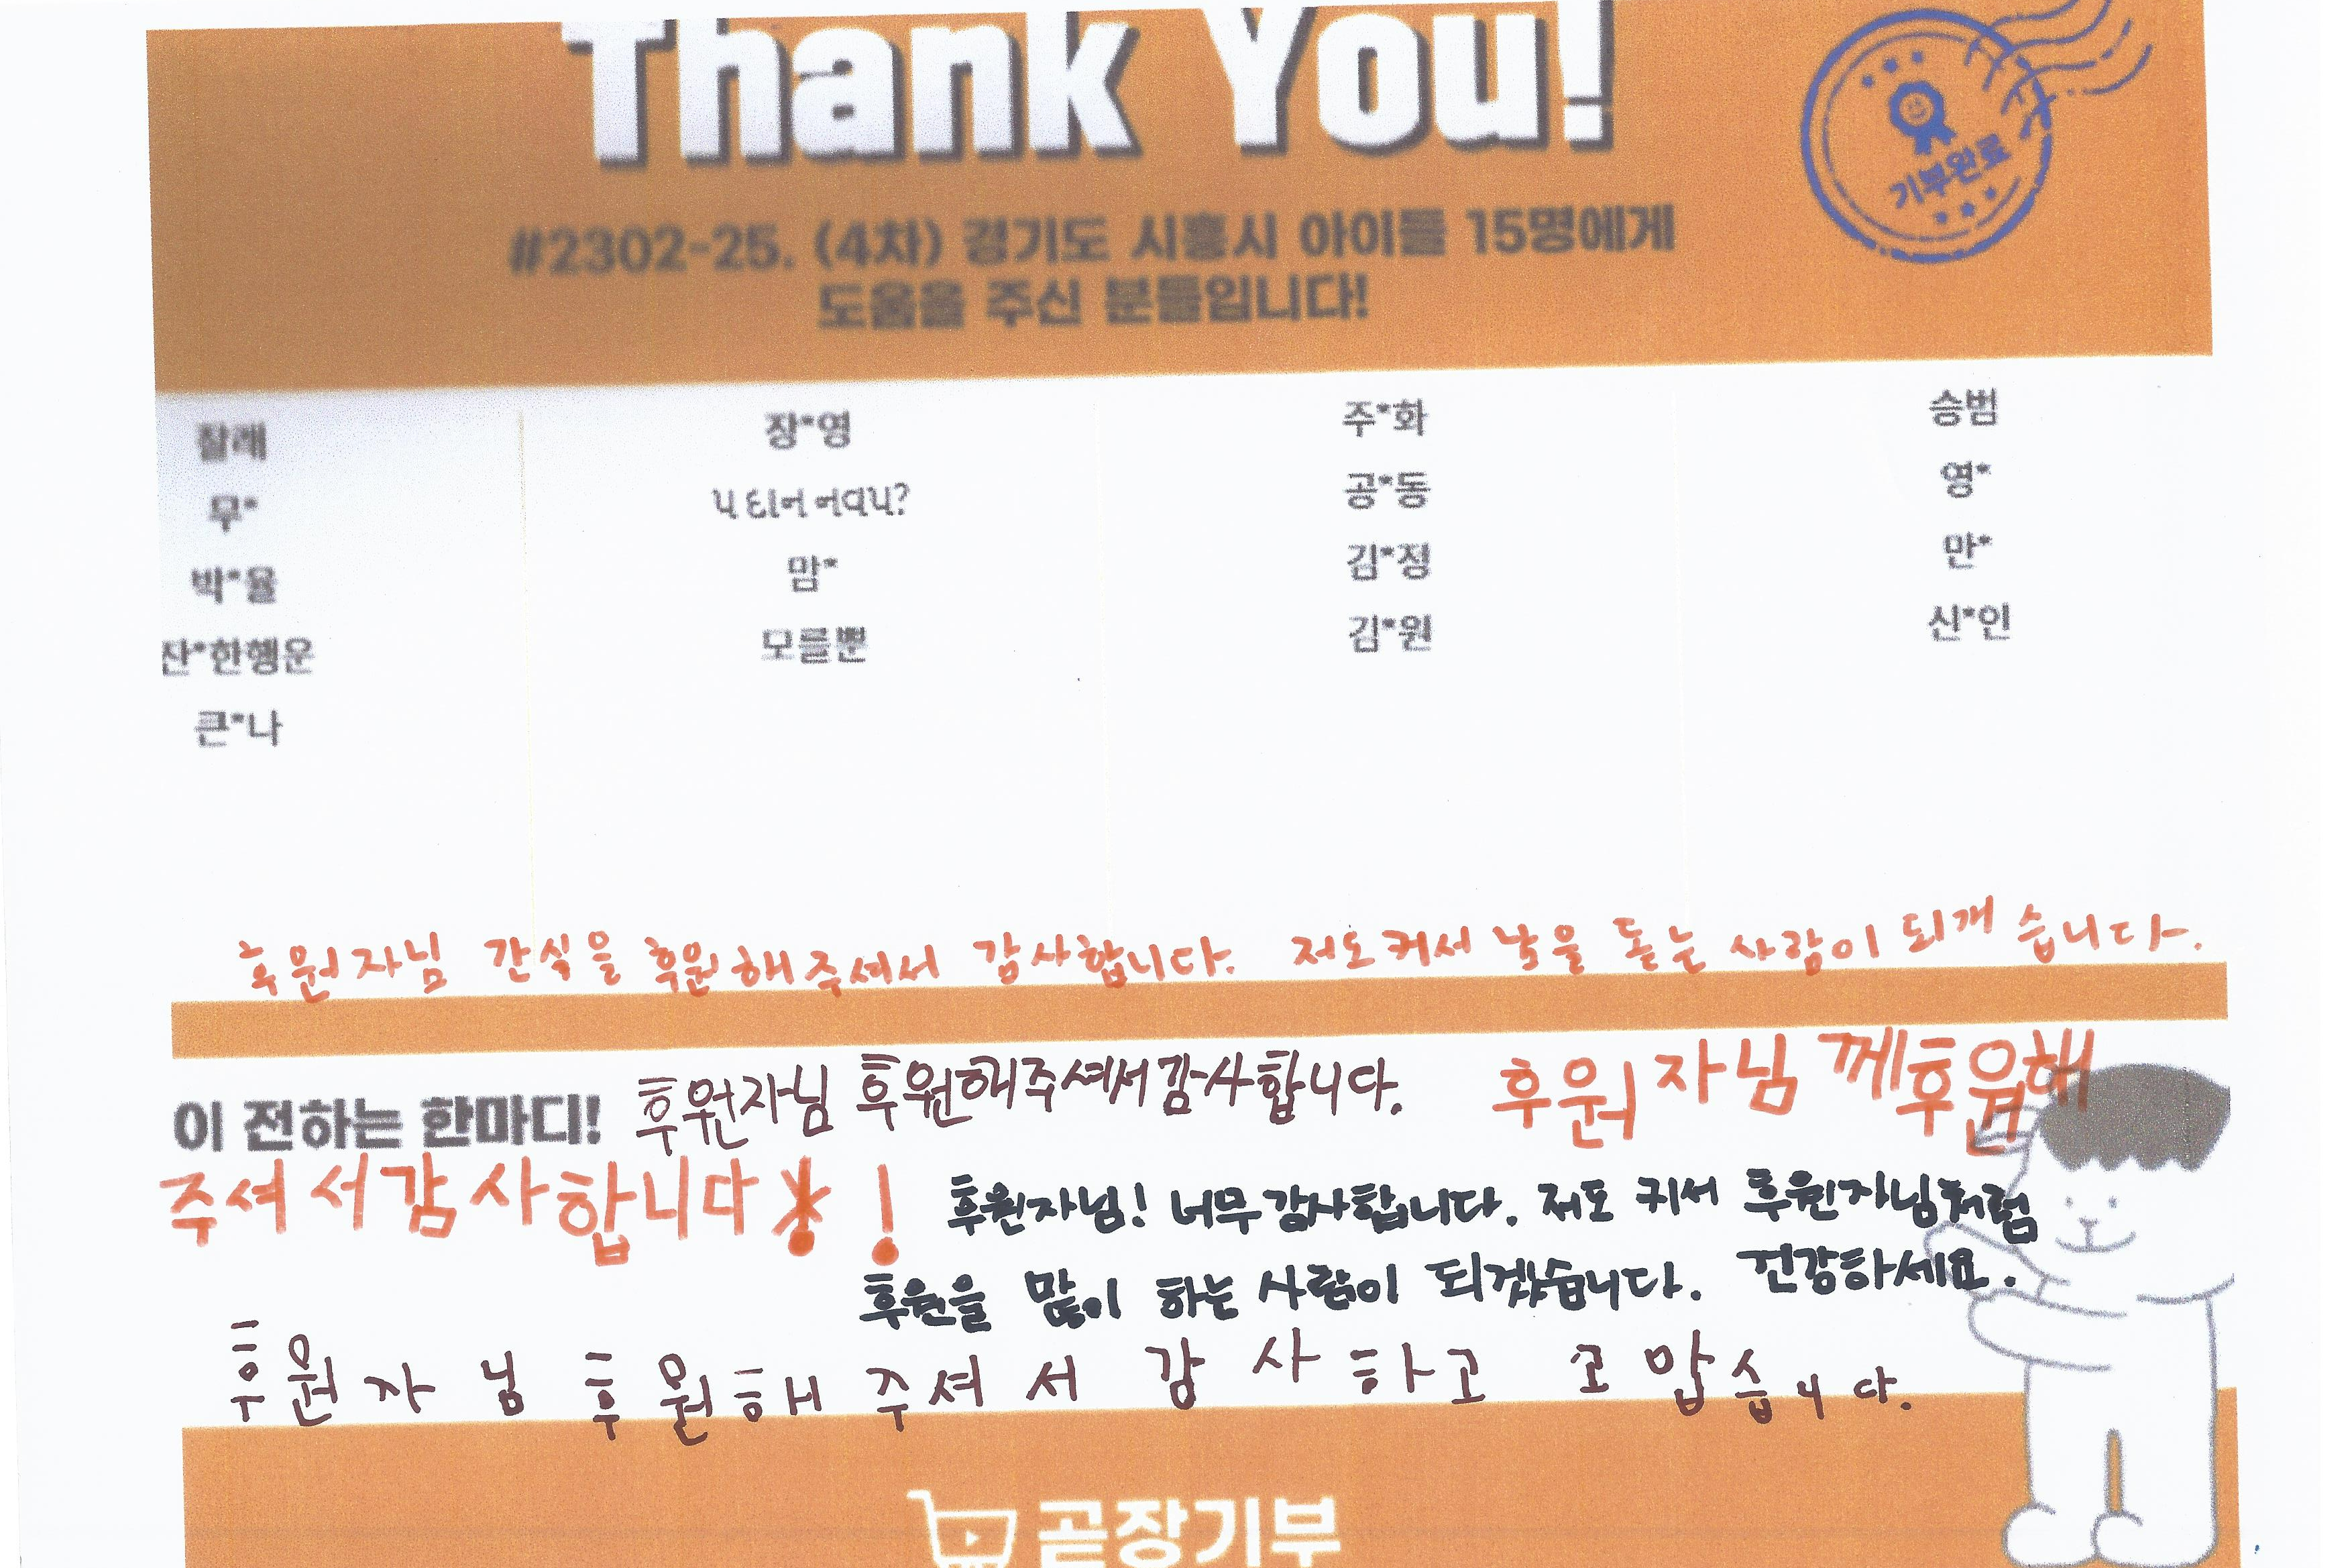 Thank You!
기부완료
#2302-25. (4차) 경기도 시흥시 아이들 15명에게
도움을 주신 분들입니다!
찰래 장*영 주*화 승범
무* 공*동 영*
박*율 맘* 김*정 만*
잔*한행운 모를뿐 김*원 신*인
큰*나
후원자님 간식을 후원해주셔서 감사합니다. 저도 커서 남을 돕는 사람이 되개 습니다.
이 전하는 한마디! 후원자님 후원해주셔서감사합니다. 후원자님께후원해
주셔서감사합니다!
후원자님! 너무감사합니다. 저도 커서 후원자님처럼
후원을 많이 하는 사람이 되겠습니다. 건강하세요.
후원자님 후원해 주셔서 감사하고 고맙습니다.
곧장기부